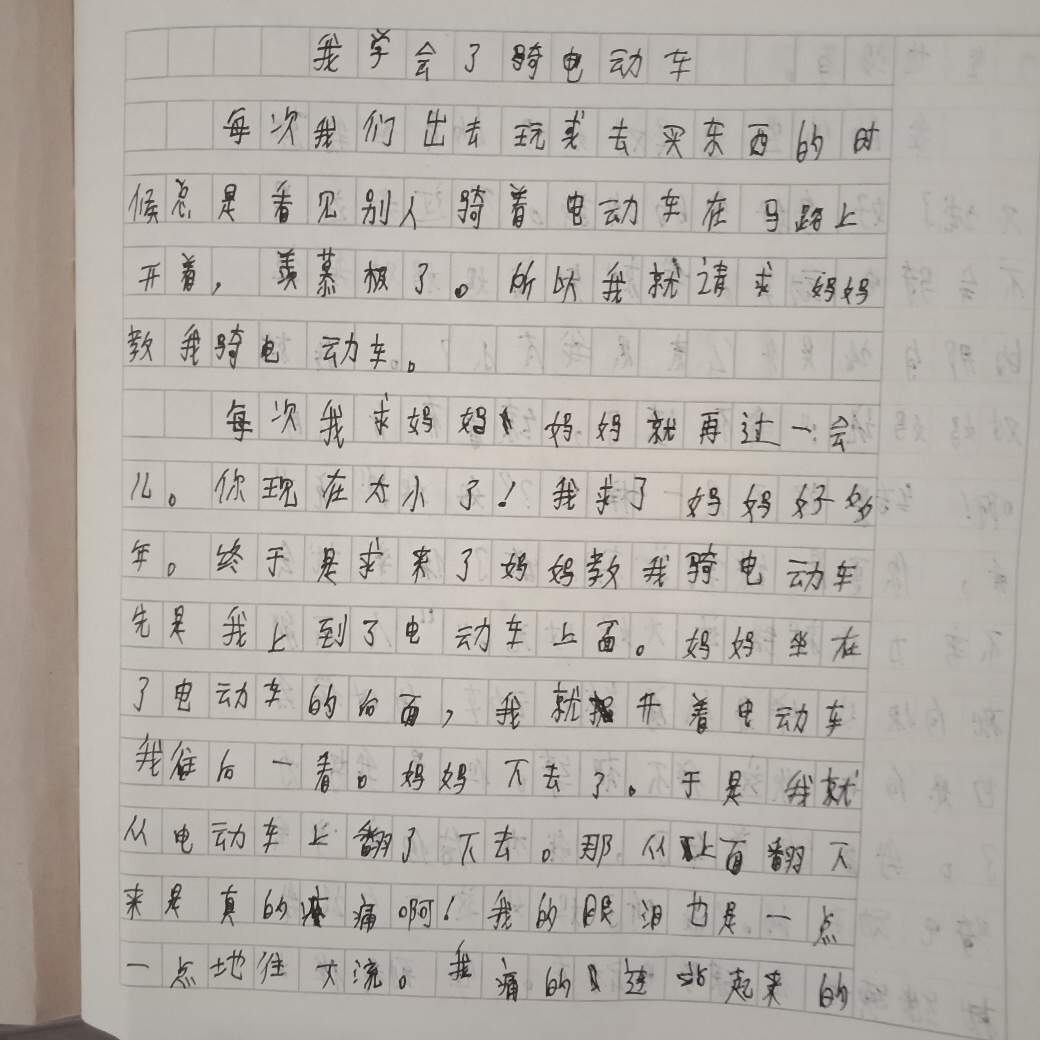 我学会了骑电动车
每次我们出去玩或去买东西的时
候总是看见别人骑着电动车在马路上
开着，羡慕极了。所以我就请求妈妈
教我骑电动车。
每次我求妈妈妈妈就再过一会
儿。你现在太小了！我求了妈妈好多
年。终于是求来了妈妈教我骑电动车
先是我上到了电动车上面。妈妈坐在
了电动车的后面，我就开着电动车
我往后一看。妈妈下去了。于是我就
从电动车上翻了下去。那从上面翻下
来是真的疼痛啊！我的眼泪也是一点
一点地往下流。我痛的连站起来的